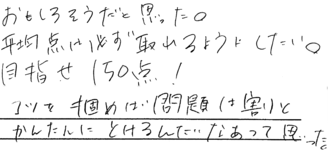 おもしろそうだと思った。
平均点は必ず取れるようにしたい。
目指せ150点！
コツを掴めば問題は割りと
かんたんにとけるんだなあって思った。